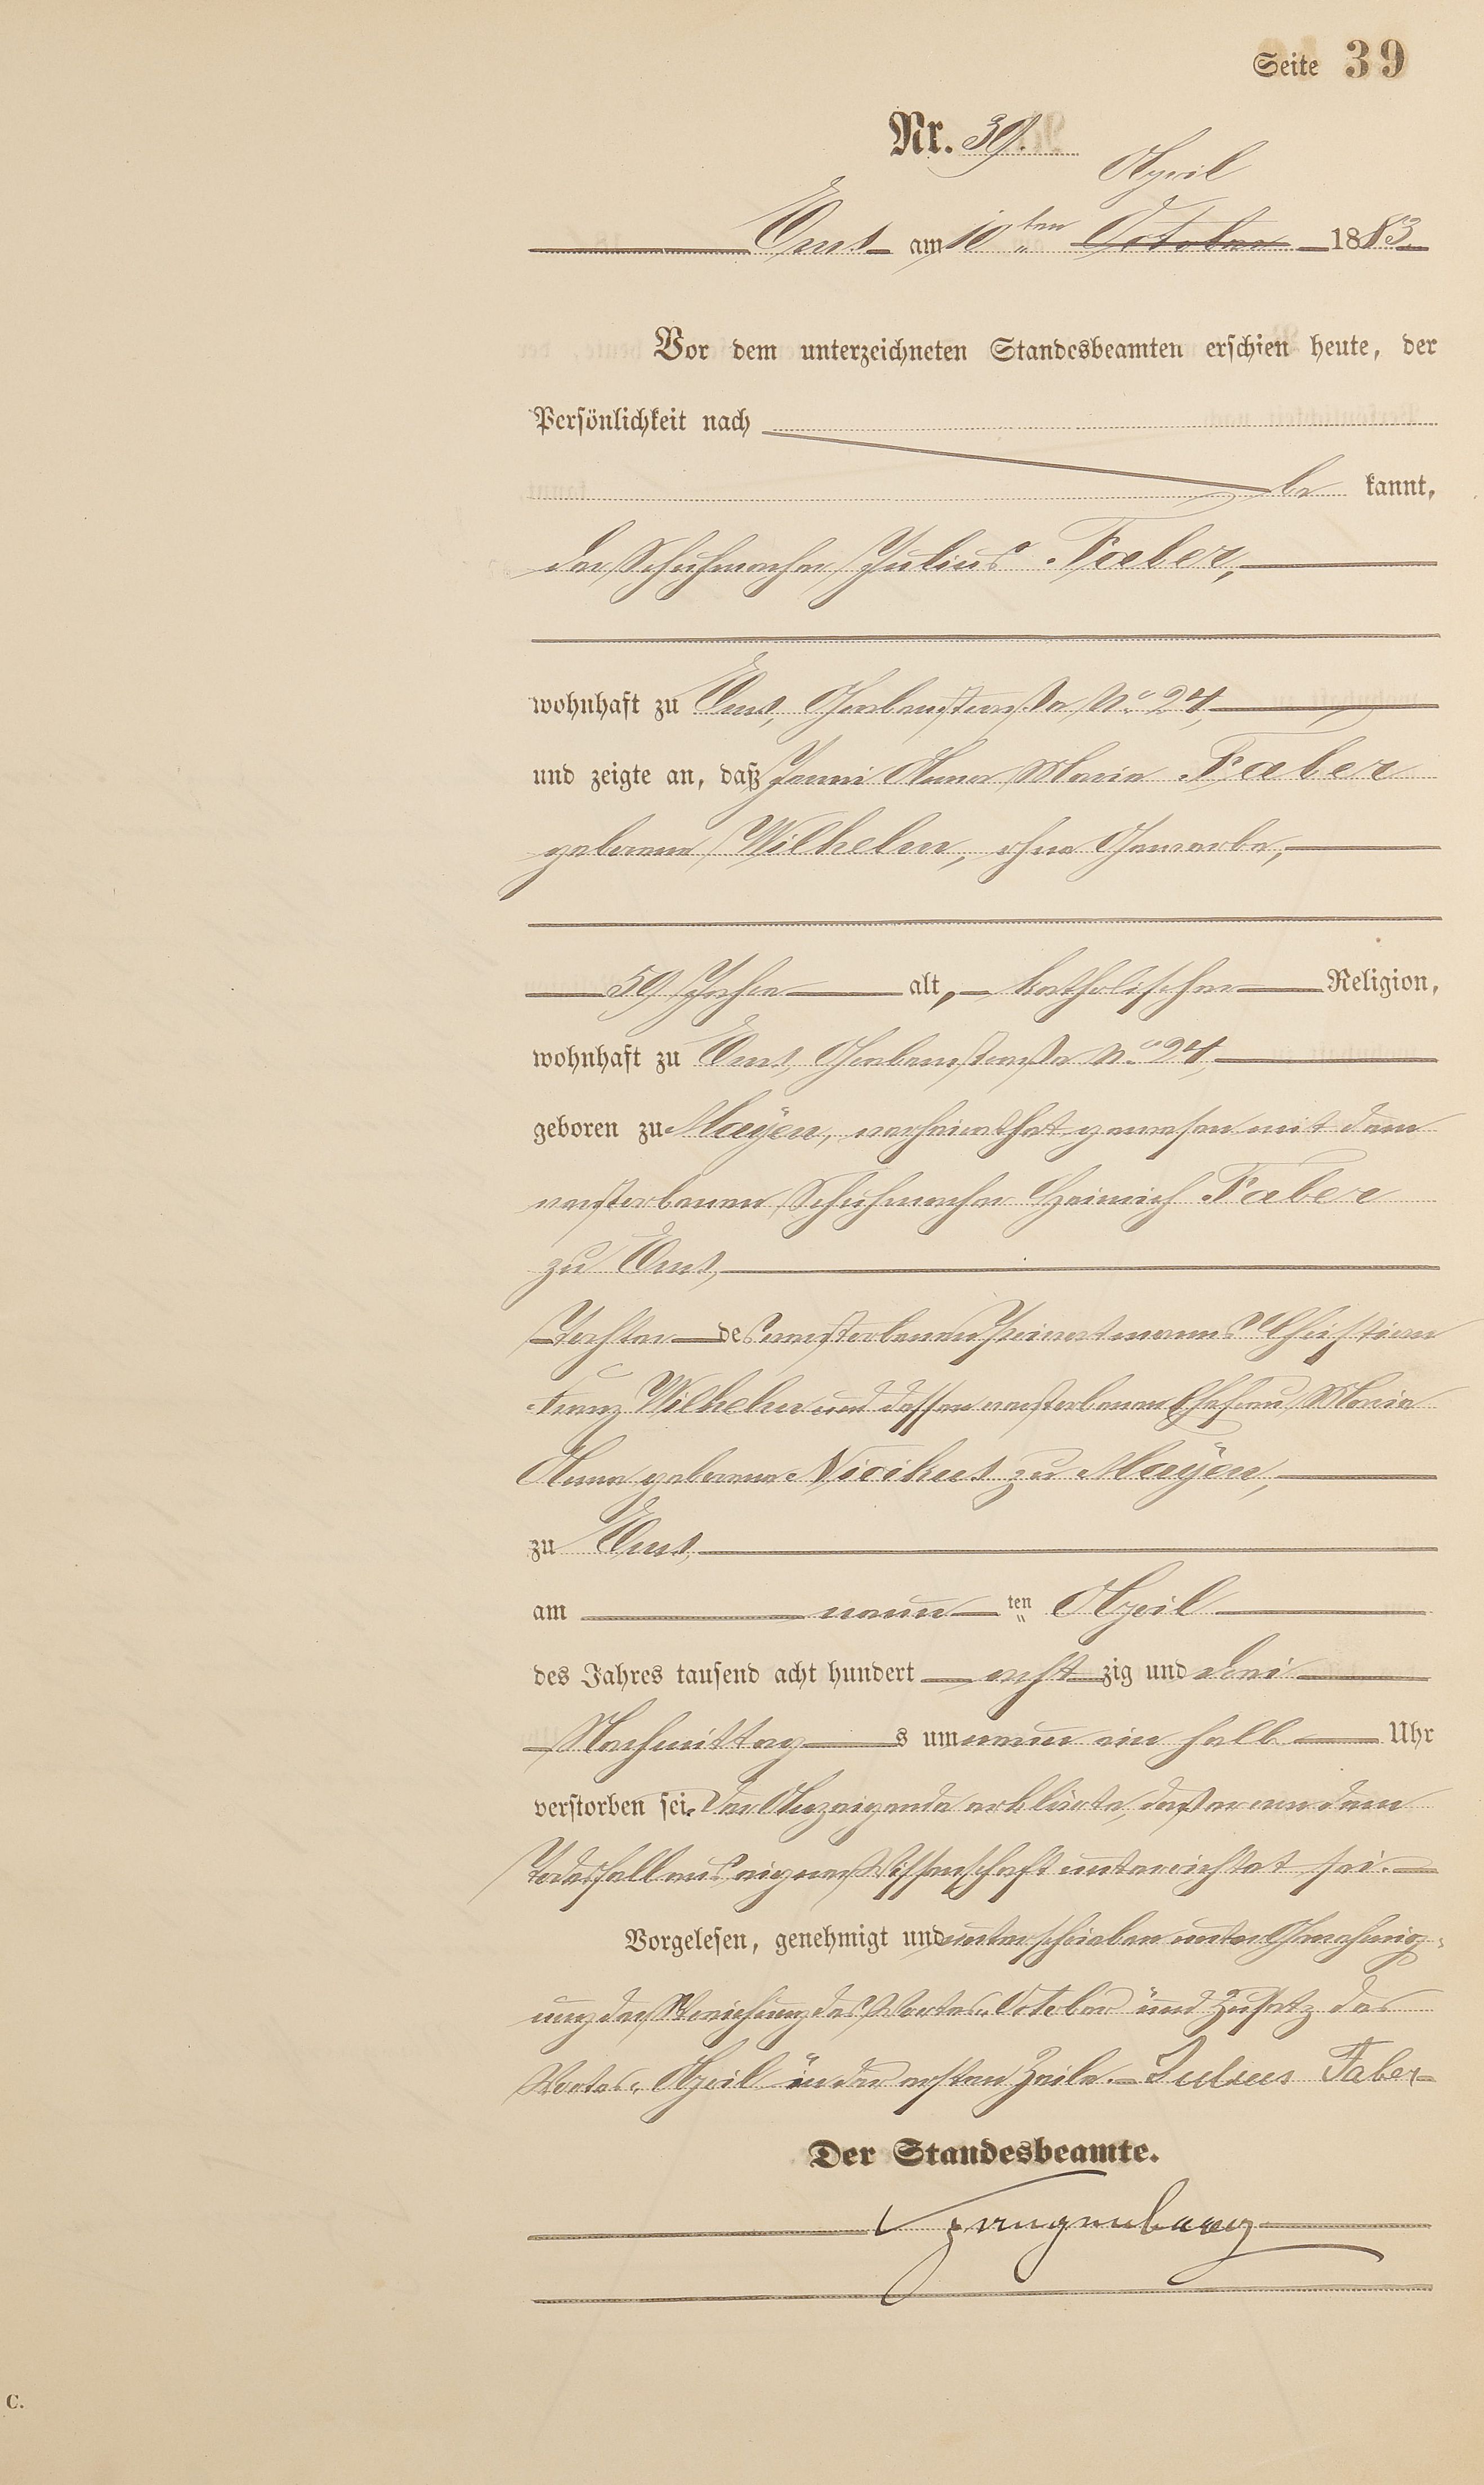 Seite 39
Nr. 39.
April
Ems am 10ten October 1883.
Vor dem unterzeichneten Standesbeamten erschien heute, der
Persönlichkeit nach
be kannt,
der Schuhmacher Julius Faber,
wohnhaft zu Ems, Grabenstraße No. 24,
und zeigte an, daß Anna Maria Faber
geborene Wilhelm, ohne Gewerbe,
59 Jahre alt, katholischer Religion,
wohnhaft zu Ems, Grabenstraße No. 24,
geboren zu Mayen, verheirathet gewesen mit dem
verstorbenen Schuhmacher Heinrich Faber
zu Ems,
Tochter des verstorbenen Christian
Franz Wilhelm und dessen verstorbenen Ehefrau Maria
Anna geborene zu Mayen,
zu Ems,
am neun ten April
des Jahres tausend acht hundert acht zig und drei
Nachmittag s um neun ein halb Uhr
verstorben sei. Der Anzeigende erklärte, daß er von dem
Todesfall aus eigner Wissenschaft unterrichtet sei.
Vorgelesen, genehmigt und unterschrieben unter Genehmig-
ung der Streichung des Wortes „October" und Zusatz des
Wortes „April" in der ersten Zeile. Julius Faber
Der Standesbeamte.
C.